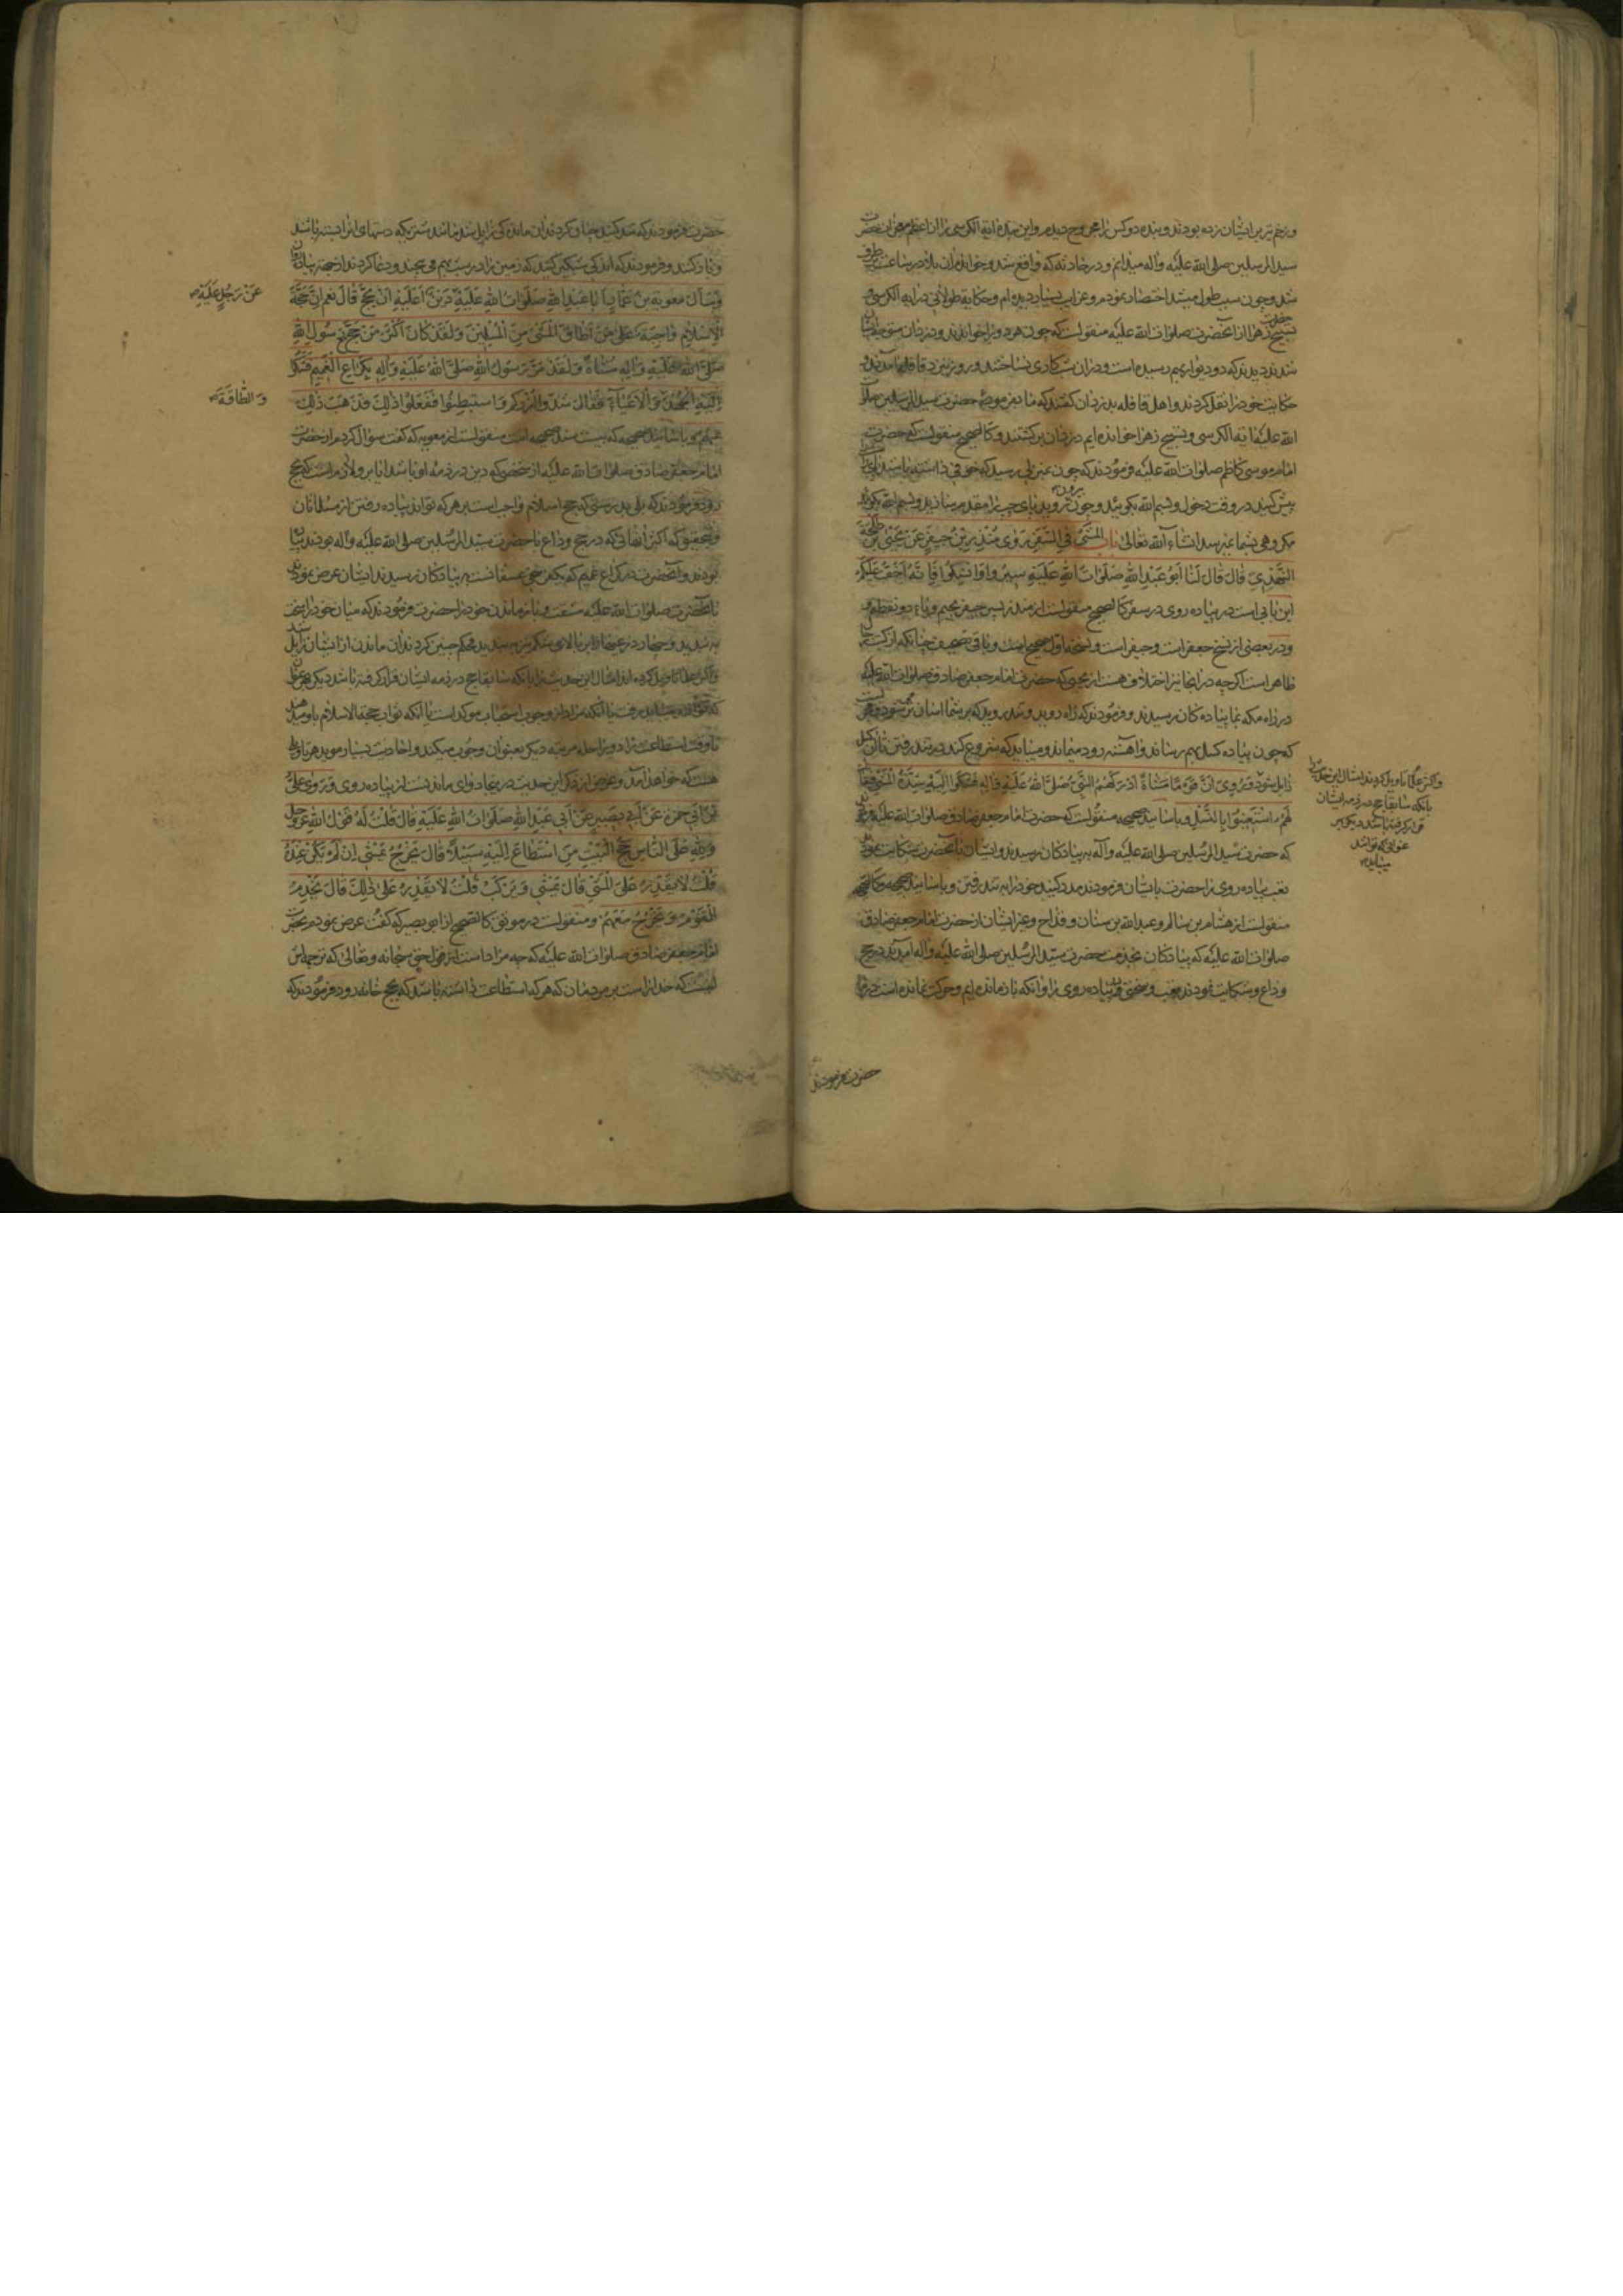 و زخم بر این ایشان زده بودند و بنده دو کس را مجروح دیدم و این بنده ایة الکرسی را
سید المرسلین صلی الله علیه و آله میدانم و در حادثه که واقع شد و خواندم آن بلا در ساعت برطرف
شد و چون سبب طول میشد اختصار نمودم و غرایب بسیار دیده ام و حکایة طولانی در ایة الکرسی و
تسبیح زهرا از آنحضرت صلوات الله علیه منقولست که چون هر دو را خواندند و دزدان متوجه
شدند دیدند که دو دیوار بهم رسیده است و در آن شب کاری نساختند و روز نزد قافله آمدند و
حکایت خود را نقل کردند و اهل قافله بدزدان گفتند که ما بفرموده حضرت سید المرسلین صلوات
الله علیه ایة الکرسی و تسبیح زهرا خوانده ایم دزدان برگشتند و کالصحیح منقولست که حضرت
امام موسی کاظم صلوات الله علیه فرمودند که چون بمنزلی رسید که خوفی داشته باشید
پیش کنید در وقت دخول و بسم الله بگوئید و چون بیرون روید پای چپ را مقدم دارید و بسم الله بگوئید
مکروهی بشما نمیرسد انشاء الله تعالی باب المشی فی السفر روی منذر بن جیفر عن یحیی بن طلحة
النهدی قال قال لنا ابو عبد الله صلوات الله علیه سیروا و انسلوا فانه اخف علیکم
این بابی است در پیاده روی در سفر کالصحیح منقولست از منذر پسر جیفر بجیم و یاء دو نقطه و
و در بعضی از نسخ جعفر است و جیفر است و نسخه اول صحیح است و باقی تصحیف چنانکه از کتب رجال
ظاهر است اگرچه در آنجا نیز اختلاف هست از یحیی که حضرت امام جعفر صادق صلوات الله علیه
در راه مکه بما پیاده کان رسیدند و فرمودند که راه روید و تند روید که بر شما آسان تر میشود
که چون پیاده کسل بهم رساند و آهسته رود میماند و میباید که شروع کند در تند رفتن تا آن کسل
زایل شود و روی ان قوما مشاة ادرکهم النبی صلی الله علیه و اله فشکوا الیه شدة المشی فقال
لهم استعینوا بالنسل و باسانید صحیحه منقولست که حضرت امام جعفر صادق صلوات الله علیه فرمودند
که حضرت سید المرسلین صلی الله علیه و آله به پیادکان رسیدند و ایشان بآنحضرت شکایت نمودند
تعب پیاده روی را حضرت بایشان فرمودند مدد کنید خود را به تند رفتن و باسانید صحیحه و کالصحیحه
منقولست از هشام بن سالم و عبدالله بن سنان و قداح و غیر ایشان از حضرت امام جعفر صادق
صلوات الله علیه که پیادکان بخدمت حضرت سید المرسلین صلی الله علیه و آله آمدند در حج
وداع و شکایت نمودند تعب و سختی پیاده روی را و آنکه باز مانده ایم و حرکت نمانده است در ما
و اکثر علما تاویل کرده اند امثال این حدیث را
بانکه سابقا حج در ذمه ایشان
قرار گرفته باشد دیگر بهر
عنوانی که تواند
میباید
حضرت فرمودند
حضرت فرمودند که شد کنید چنان کردند آن ماندگی زایل شد مانند شتر یکه دستهای انرا بسته باشند
و باز کنند و فرمودند که اندکی شبگیر کنید که زمین زاد در شب بهم می پیچد و دعا کردند از جهة پیادگان
و سأل معویة بن عمار ابا عبد الله صلوات الله علیه دین أعلیه أن یحج قال نعم ان حجة
عن رجل علیه
الاسلام واجبة علی من أطاق المشی من المسلمین و لقد کان أکثر من حج مع رسول الله
صلی الله علیه و آله مشاة و لقد مر رسول الله صلی الله علیه و آله بکراع الغمیم فشکوا
الیه الجهد و الاعیاء فقال شدوا أزرکم و استبطنوا ففعلوا ذلک فذهب ذلک
و الطاقة
عنهم و باسانید صحیحه که بیست سند صحیحه است منقولست از معویه که گفت سؤال کردم از حضرت
امام جعفر صادق صلوات الله علیه از شخصی که دین در ذمه او باشد ایا بر او لازم است که حج
رود فرمودند که بلی بدرستی که حج اسلام واجب است بر هر که تواند پیاده رفتن از مسلمانان
و بتحقیق که اکثر آنهائی که در حج وداع با حضرت سید المرسلین صلی الله علیه و آله بودند پیاده
بودند و آنحضرت در کراع غمیم که یکمنزلی عسفانست به پیادکان رسیدند ایشان عرض نمودند
بآنحضرت صلوات الله علیه مشقت و باز ماندن خود را حضرت فرمودند که میان خود را سخت
به بندید و چیزی در زیر جامه بر بالای شکم نیز به بندید محکم چنین کردند آن ماندن از ایشان زایل شد
و اکثر علما تاویل کرده اند امثال این حدیث را بانکه سابقا حج در ذمه ایشان قرار گرفته باشد دیگر بهر عنوان
که تواند میباید رفت یا آنکه مراد از وجوب استحباب موکد است یا آنکه ثواب حجة الاسلام باو میدهند
تا وقت استطاعت زاد و راحله مرتبه دیگر بعنوان وجوب میکند و احادیث بسیار موید هر تاویل
هست که خواهد آمد و غرض از ذکر این حدیث در اینجا دوای ماندنست از پیاده روی و روی علی
بن أبی حمزة عن أبی بصیر عن أبی عبد الله صلوات الله علیه قال قلت له قول الله عز و جل
و لله علی الناس حج البیت من استطاع الیه سبیلا قال یخرج یمشی ان لم یکن عنده
قلت لا یقدر علی المشی قال یمشی و یرکب قلت لا یقدر علی ذلک قال یخدم
القوم و یخرج معهم و منقولست در موثق کالصحیح از ابو بصیر که گفت عرض نمودم بحضرت
امام جعفر صادق صلوات الله علیه که چه مراد است از قول حق سبحانه و تعالی که ترجمه اش
اینست که خدا راست بر مردمان که هر که استطاعت داشته باشد که بحج خانه رود فرمودند که